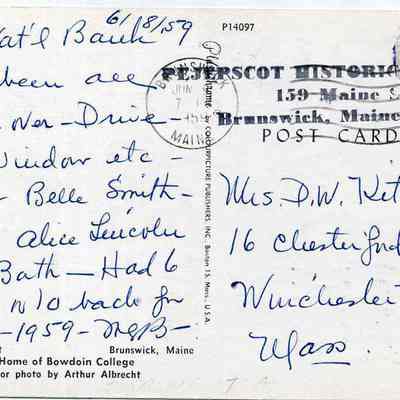 6/18/59
Nat'l Bank
been all
over - Drive -
Window etc -
- Belle Smith -
Alice Lincoln
Bath - Had 6
n/o back for
- 1959 - MGB -
Brunswick, Maine
Home of Bowdoin College
or photo by Arthur Albrecht
P14097
Plastichrome by COLOURPICTURE PUBLISHERS, INC. Boston 15, Mass., U.S.A.
BRUNSWICK
JUN
1959
MAINE
PEJEPSCOT HISTORIC
159 Maine S
Brunswick, Maine
POST CARD
Mrs D.W. Kit
16 Chesterford
Winchester
Mass.